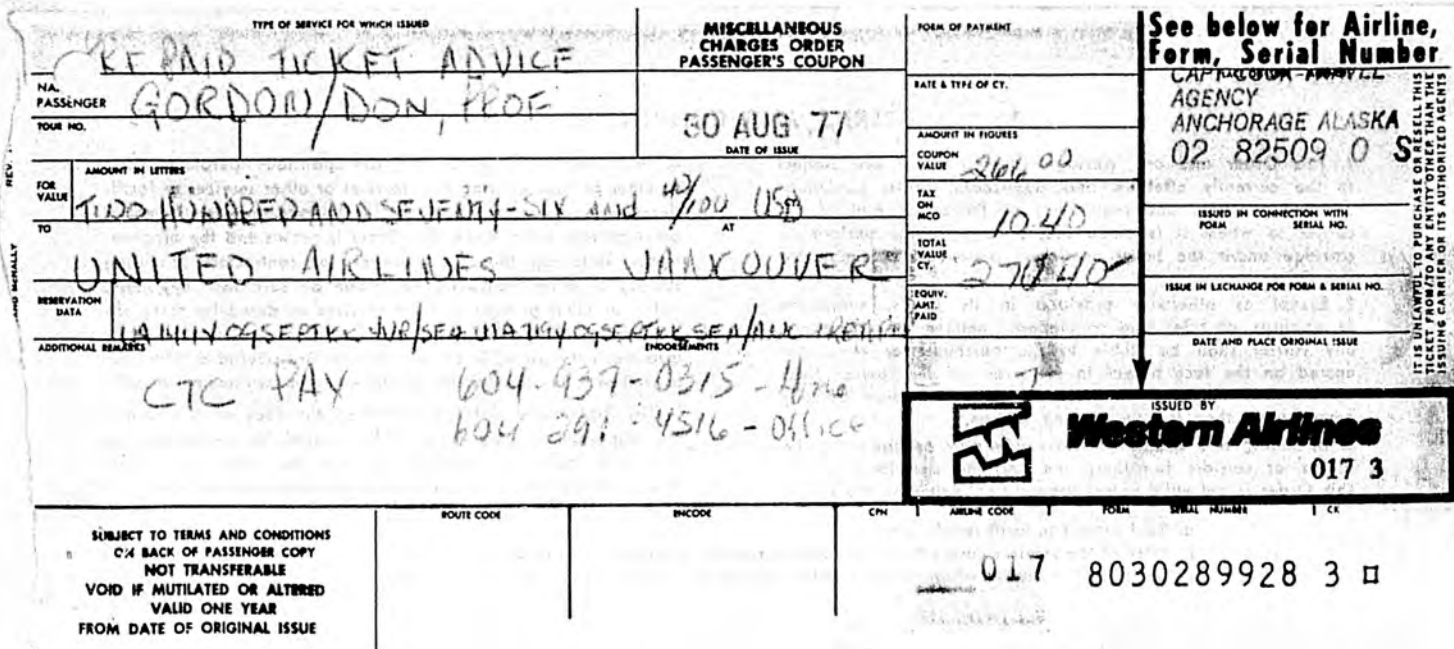 TYPE OF SERVICE FOR WHICH ISSUED
PAID TICKET ADVICE
NA.
PASSENGER
GORDON/DON, PROF
TOUR NO.
MISCELLANEOUS
CHARGES ORDER
PASSENGER'S COUPON
30 AUG 77
DATE OF ISSUE
FORM OF PAYMENT
RATE & TYPE OF CY.
AMOUNT IN FIGURES
COUPON
VALUE
266 00
TAX
ON
MCO
10.40
TOTAL
VALUE
CY.
EQUIV.
AMT.
PAID
See below for Airline,
Form, Serial Number
AGENCY
ANCHORAGE ALASKA
02 82509 0 S
ISSUED IN CONNECTION WITH
FORM SERIAL NO.
ISSUE IN EXCHANGE FOR FORM & SERIAL NO.
DATE AND PLACE ORIGINAL ISSUE
IT IS UNLAWFUL TO PURCHASE OR RESELL THIS
TICKET FROM/TO ANY ENTITY OTHER THAN THE
ISSUING CARRIER OR ITS AUTHORIZED AGENTS
REV.
AMOUNT IN LETTERS
FOR
VALUE
TWO HUNDRED AND SEVENTY-SIX and 40/100 USD
TO
AT
UNITED AIRLINES VANCOUVER
RESERVATION
DATA
ADDITIONAL REMARKS
ENDORSEMENTS
CTC PAX 604-937-0315-Hme
604 291-4516-Office
ISSUED BY
Western Airlines
017 3
SUBJECT TO TERMS AND CONDITIONS
ON BACK OF PASSENGER COPY
NOT TRANSFERABLE
VOID IF MUTILATED OR ALTERED
VALID ONE YEAR
FROM DATE OF ORIGINAL ISSUE
ROUTE CODE
ENCODE
CPN
AIRLINE CODE
FORM
SERIAL NUMBER
CK
017 8030289928 3